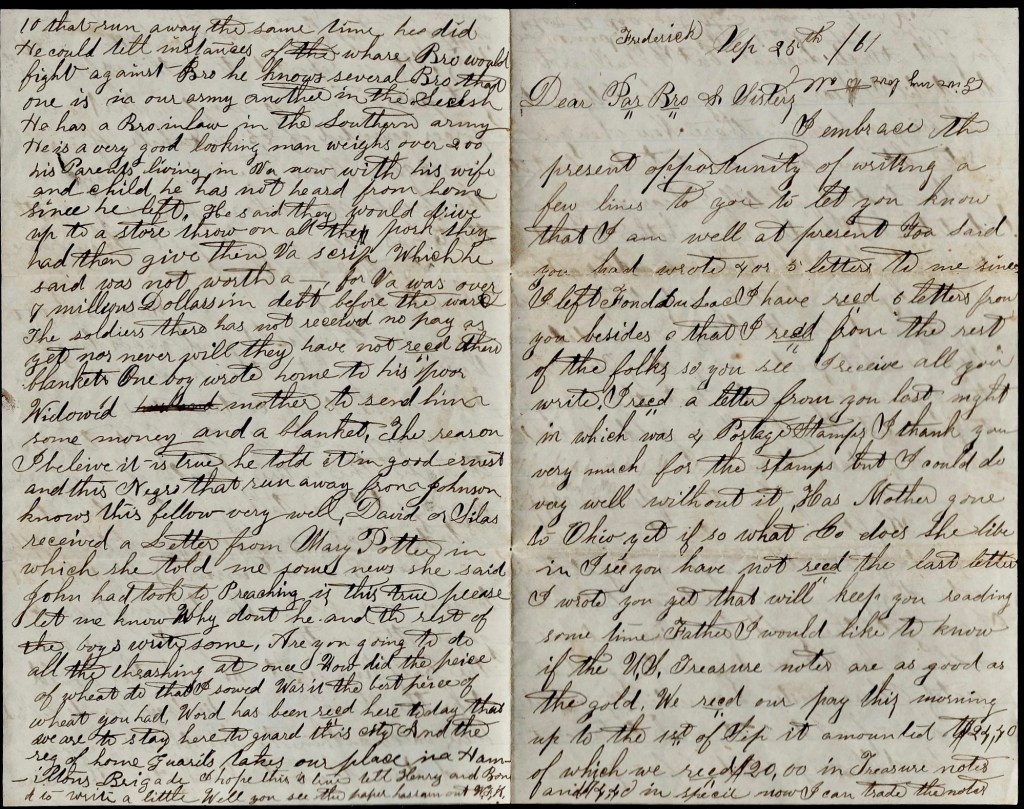 Frederick Sep 25th /61
Dear Par Bro & Sisters
I embrace the
present opportunity of writing a
few lines to you to let you know
that I am well at present You said
you had wrote 4 or 5 letters to me since
I left Fond Du Lac I have reed 6 letters from
you besides 6 that I reed from the rest
of the folks so you see I receive all you
write. I reed a letter from you last night
in which was 4 Postage Stamps I thank you
very much for the stamps but I could do
very well without it, Has Mother gone
to Ohio yet if so what Co does she live
in I see you have not reed the last letter
I wrote you yet that will keep you reading
some time Father I would like to know
if the U,S, Treasure notes are as good as
the gold. We reed our pay this morning
up to the 1st of Sep it amounted to $24,40
of which we reed $20,00 in Treasure notes
and $4,40 in specie now I can trade the notes
10 that run away the same time he did
He could tell instances of the whare Bro would
fight against Bro he knows several Bro that
one is in our army another in the Secesh
He has a Bro inlaw in the Southern army
He is a very good looking man weighs over 200
his Parents living in Va now with his wife
and child he has not heard from home
since he left, He said they would drive
up to a store throw on all the pork they
had then give them Va scrip Which he
said was not worth a —, for Va was over
4 millions Dollars in debt before the war
The soldiers there has not received no pay as
yet nor never will they have not reed there
blankets One boy wrote home to his poor
Widow'd mother to send him
some money and a blanket, The reason
I beleive it is true he told it in good ernest
and this Negro that run away from Johnson
knows this fellow very well, David or Silas
received a Letter from Mary Potter in
which she told me some news she said
John had took to Preaching is this true please
let me know Why dont he and the rest of
the boys write some, Are you going to do
all the thrashing at once How did the peice
of wheat do that I sowed Was it the best peice of
wheat you had, Word has been reed here to day that
we are to stay here to guard this city And the
reg of home Guards takes our place in Ham-
-iltons Brigade I hope this is true tell Henry and
to write a little Well you see the paper has ran out